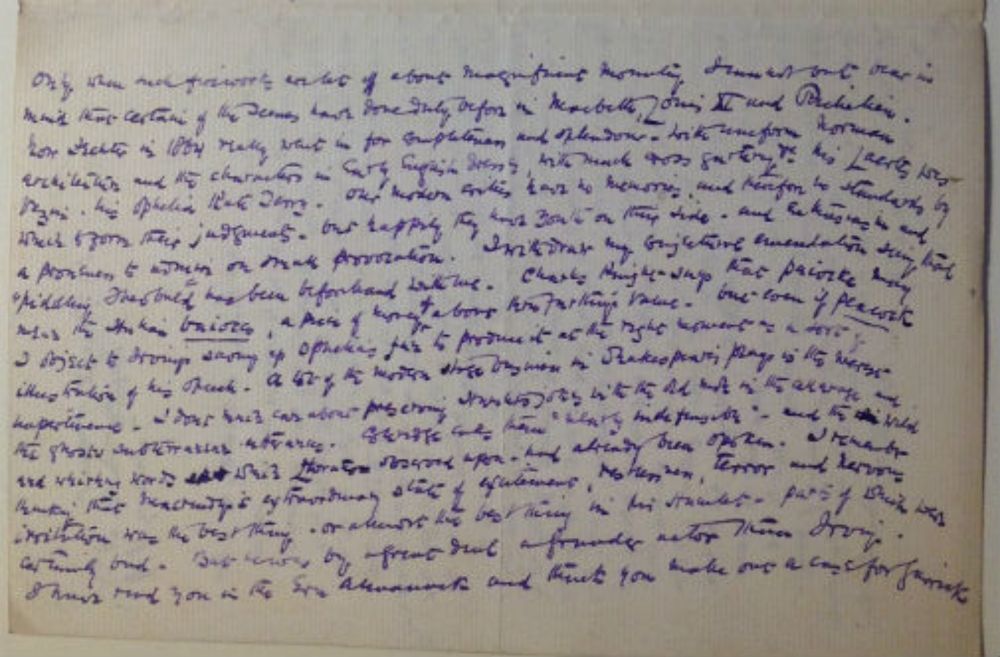 Only when such fireworks are let off about magnificent mounting I cannot but bear in
mind that certain of the scenes have done duty before in Macbeth, Louis XI and Richelieu.
Now Fechter in 1864 really went in for completeness and splendour - with uniform Norman
architecture and the characters in Early English dress, with much cross gartering &c his Laertes was
his Ophelia Kate Terry. Our modern critics have no memories and therefore no standards by
which to form their judgments. but happily they have on their side - and
a proneness to admire on small provocation. I withdraw my emendation seeing that
has been beforehand with me. Charles Knight says that paiocke may
mean the Italian baiocco, a piece of money about three farthings value. but even if peacock
I object to Irving's up Ophelia's fan to produce it at the right moment as a sort of
illustration of his speech. A lot of the modern stage business in Shakespeare's plays is the merest
impertinence. I don't much care about preserving with the old mole in the cellarage and
the ghost's subterranean utterances. Coleridge calls them "nearly indefensible" - and the wild
and whirling words which Horatio observed upon had already been spoken. I remember
thinking that Macready's extraordinary state of excitement, restlessness, terror and nervous
irritation was the best thing - or almost the best thing in his Hamlet - parts of which were
certainly bad. But he was by a great deal a grander actor than Irving.
I have read you in the Era Almanack and think you make out a case for Garrick